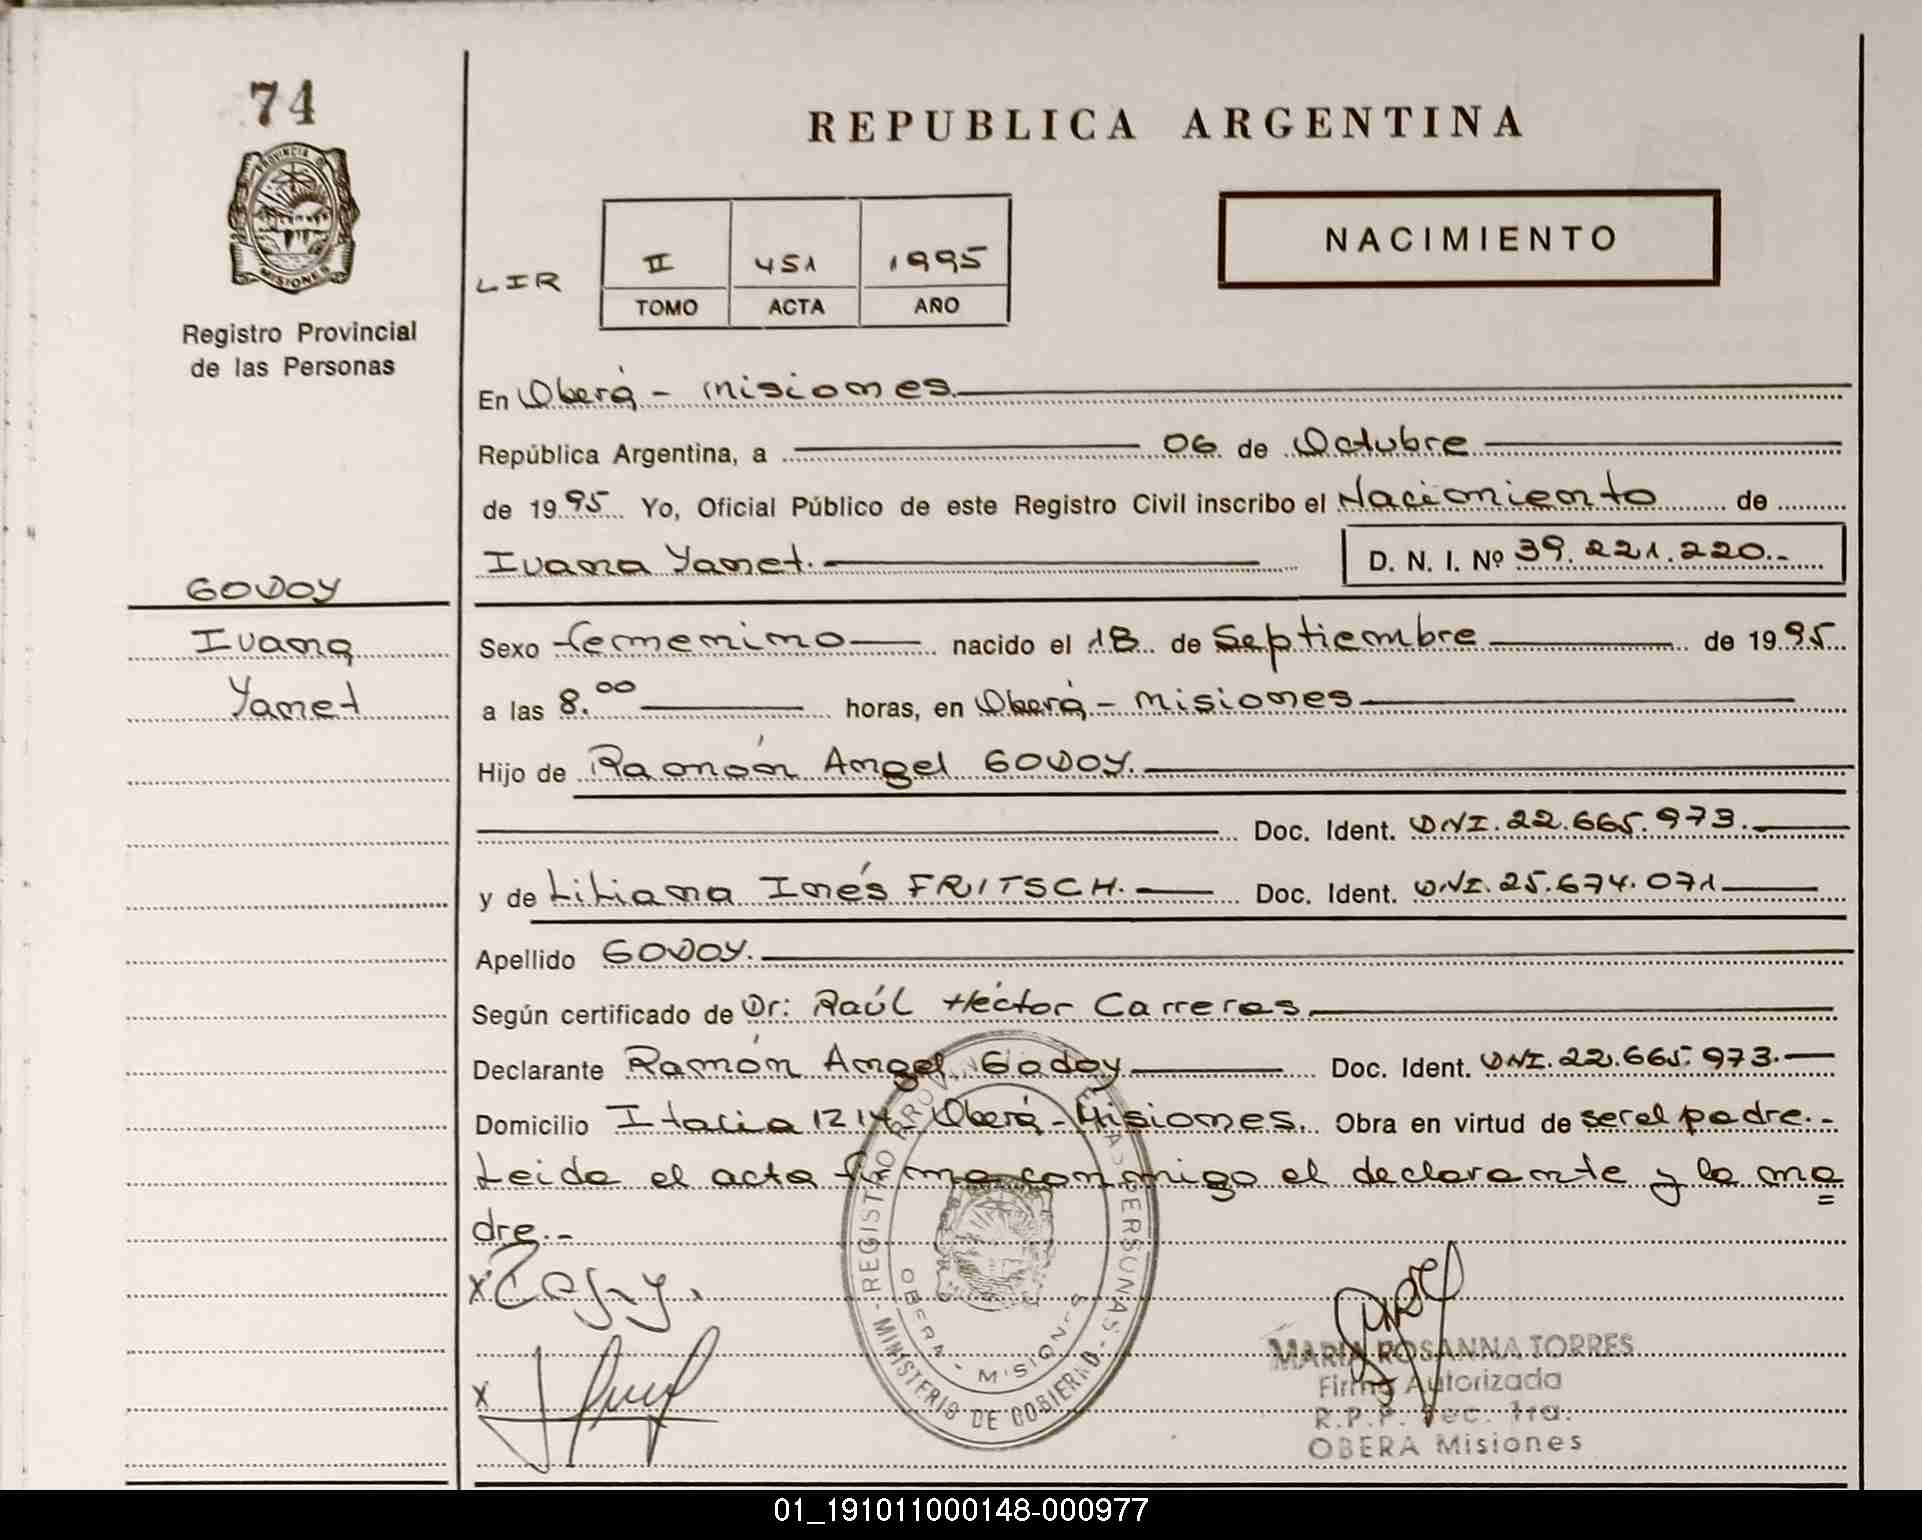 74
PROVINCIA D
MISIONES
Registro Provincial
de las Personas
REPUBLICA ARGENTINA
NACIMIENTO
LIR
II 451 1995
TOMO ACTA AÑO
En Oberá - Misiones.
República Argentina, a 06 de Octubre
de 1995 Yo, Oficial Público de este Registro Civil inscribo el Nacimiento de
Ivana Yanet. D. N. I. Nº 39.221.220.-
GODOY
Ivana
Yanet
Sexo femenino nacido el 18 de Septiembre de 1995
a las 8.00 horas, en Oberá - Misiones
Hijo de Ramón Angel GODOY.
Doc. Ident. DNI. 22.665.973.
y de Liliana Inés FRITSCH. Doc. Ident. DNI. 25.674.071
Apellido GODOY.
Según certificado de Dr: Raúl Héctor Carreras.
Declarante Ramón Angel Godoy Doc. Ident. DNI. 22.665.973.
Domicilio Italia 1214 - Oberá - Misiones. Obra en virtud de ser el padre.-
Leida el acta firma conmigo el declarante y la ma
dre.-
x
x
REGISTRO PERSONAS
MINISTERIO DE GOBIERNO
OBERA - MISIONES
MARIA ROSANNA TORRES
Firma Autorizada
R.P.P. Sec. 1ra.
OBERA Misiones
01_191011000148-000977